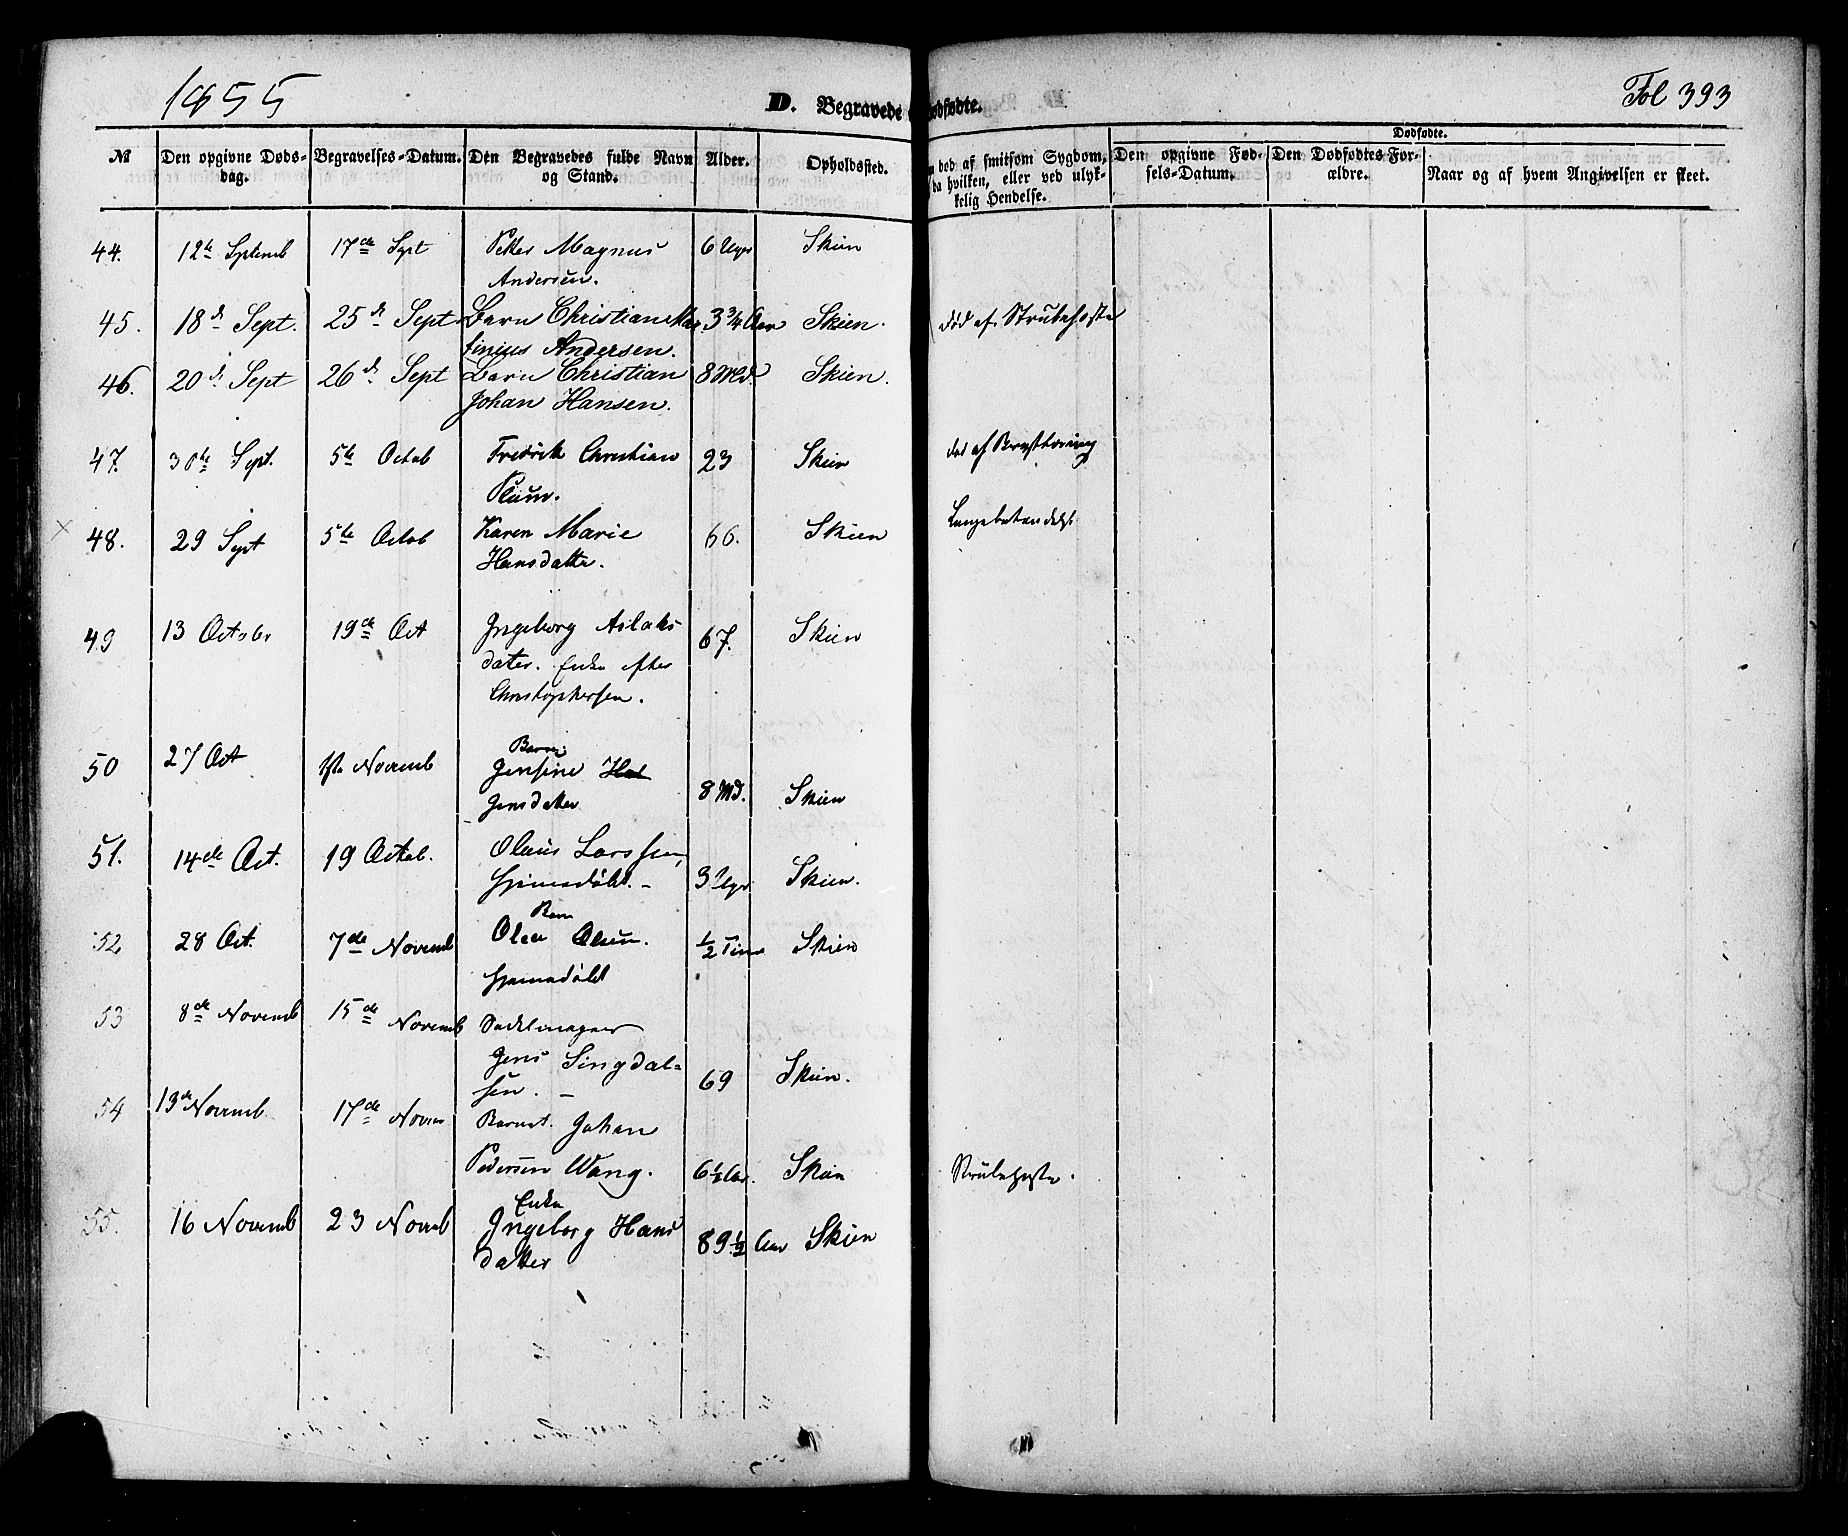 1855
D. Begravede
Dødfødte.
Fol 393
Dødfødte.
№ Den opgivne Døds- Begravelses-Datum. Den Begravedes fulde Navn Alder. Opholdssted. død af smitsom Sygdom, Den opgivne Fød- Den Dødfødtes For- Naar og af hvem Angivelsen er skeet.
dag. og Stand. hvilken, eller ved ulyk- sels-Datum. ældre.
kelig Hendelse.
44. 12te Septemb 17de Sept Petter Magnus 6 Uger Skien
Andersen.
45. 18de Sept. 25de Sept Barn Christian Mar- 3 3/4 Aar Skien. død af Strubehoste
tinius Andersen.
46. 20de Sept 26de Sept Barn Christian 8 Md. Skien.
Johan Hansen.
47. 30te Sept. 5te Octob Fredrik Christian 23 Skien død af Brysttæring
Plum.
× 48. 29 Sept 5te Octob Karen Marie 66. Skien
Hansdatter.
49 13 October 19de Oct Ingeborg Aslaks 67. Skien
datter. Enke efter
Christophersen.
50 27 Oct 1ste Novemb Barn
Jensine
Jensdatter 8 Md. Skien
51. 14de Oct. 19 Octob. Olaus Larssen, 3 Uger Skien.
hjemmedøbt. -
52 28 Oct. 7de Novemb Barn
Olea Olsen. 1/2 Time Skien
hjemmedøbt
53 8de Novemb 15de Novemb Sadelmager
Jens Singdal-
sen. - 69 Skien.
54 13de Novemb. 17de Novem Barnet Johan
Pedersen Wang. 6 1/2 Aar. Skien Strubehoste.
55. 16 Novemb 23 Novmb Enke
Ingeborg Hans 89 1/2 Aar Skien
datter